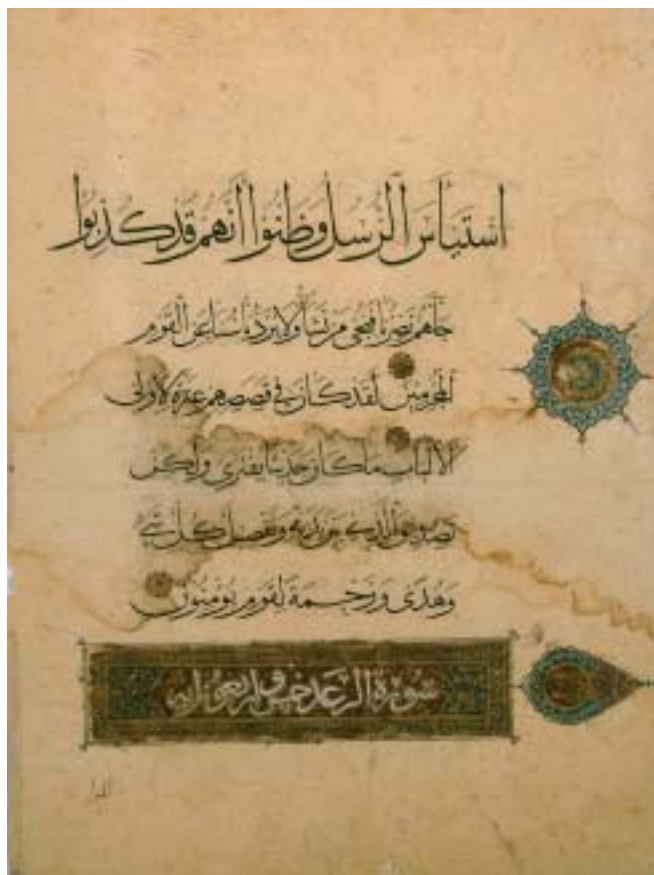 استيأس الرسل وظنوا أنهم قد كذبوا
جاءهم نصرنا فنجي من نشاء ولا يرد بأسنا عن القوم
المجرمين لقد كان في قصصهم عبرة لأولي
الألباب ما كان حديثا يفترى ولكن
تصديق الذي بين يديه وتفصيل كل شيء
وهدى ورحمة لقوم يؤمنون
سورة الرعد خمس وأربعون آية